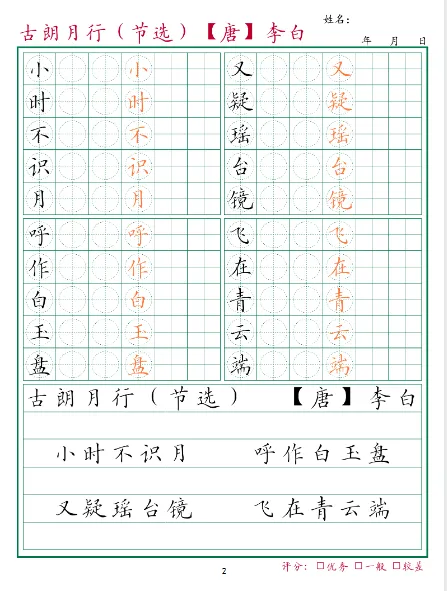 姓名：
古朗月行（节选）【唐】李白
年 月 日
小 小 又 又
时 时 疑 疑
不 不 瑶 瑶
识 识 台 台
月 月 镜 镜
呼 呼 飞 飞
作 作 在 在
白 白 青 青
玉 玉 云 云
盘 盘 端 端
古朗月行（节选） 【唐】李白
小时不识月 呼作白玉盘
又疑瑶台镜 飞在青云端
评分：□优秀 □一般 □较差
2